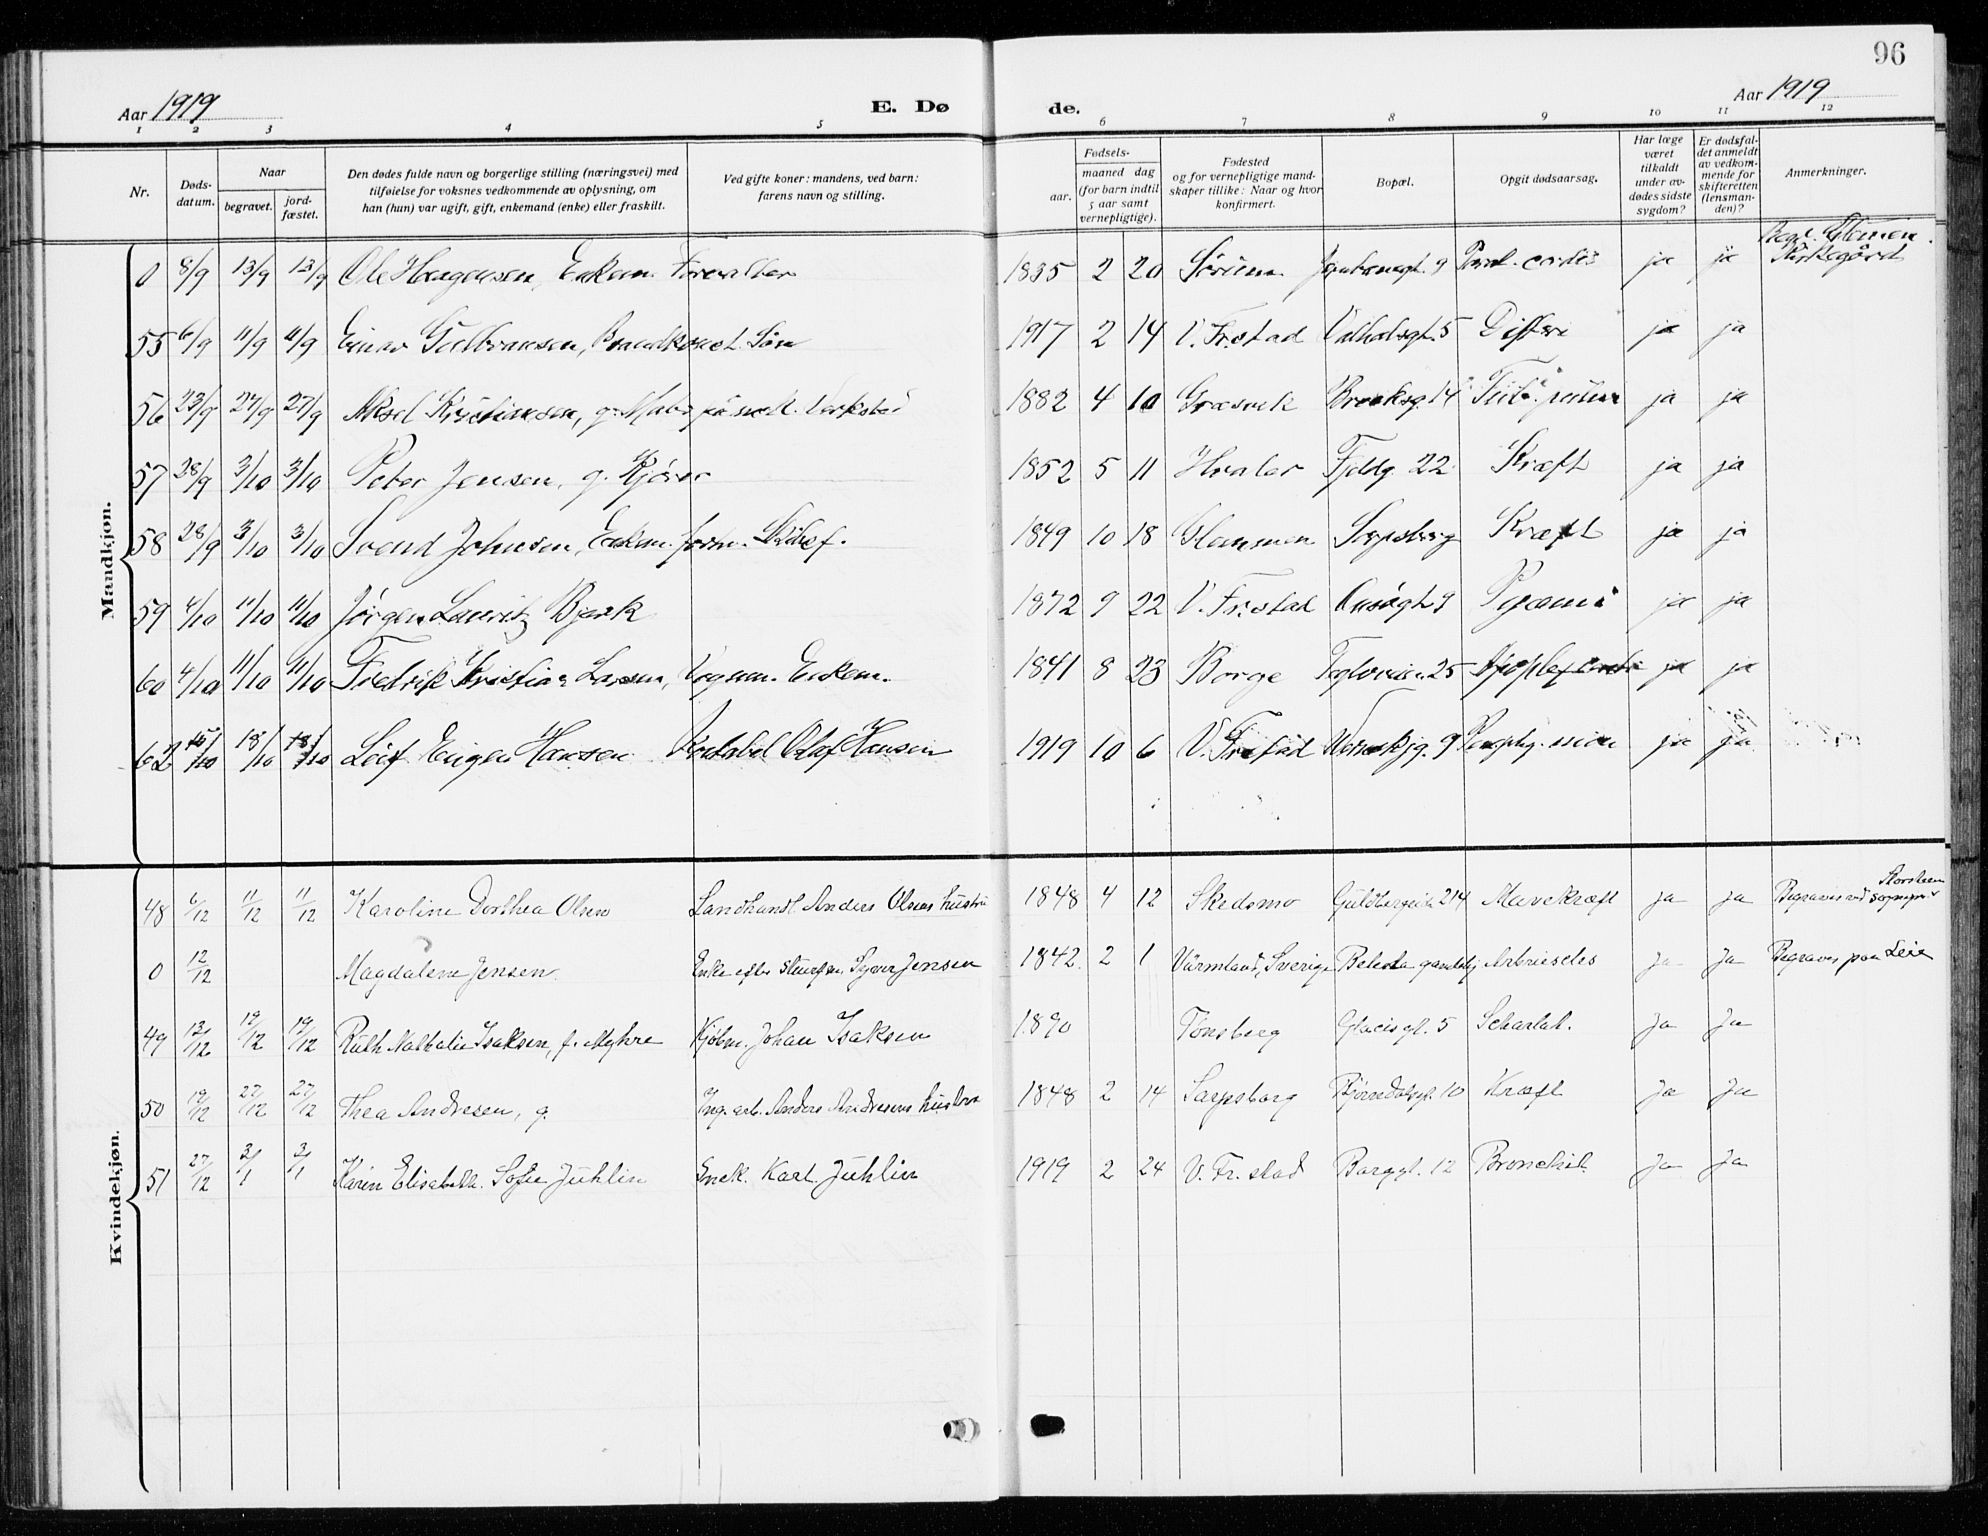 96
Aar 1919
E. Dø
de.
Aar 1919
1 2 3 4 5 6 7 8 9 10 11 12
Nr. Døds-datum. Naar begravet. jord-fæstet. Den dødes fulde navn og borgerlige stilling (næringsvei) med tilføielse for voksnes vedkommende av oplysning, om han (hun) var ugift, gift, enkemand (enke) eller fraskilt. Ved gifte koner: mandens, ved barn: farens navn og stilling. Fødsels- aar. maaned dag (for barn indtil 5 aar samt vernepligtige). Fødested og for vernepligtige mandskaper tillike: Naar og hvor konfirmert. Bopæl. Opgit dødsaarsag. Har læge været tilkaldt under avdødes sidste sygdom? Er dødsfaldet anmeldt av vedkommende for skifteretten (lensmanden)? Anmerkninger.
Mandkjøn.
0 8/9 13/9 13/9 Ole Haagensen, Enkem. Forvalter 1835 2 20 Sørum Jernbanegt. 9 cordis ja ja Kirkegård
55 6/9 11/9 11/9 Einar Gulbransen, Søn 1917 2 14 V. Fr.stad Valhalsgt. 5 Difteri ja ja
56 23/9 27/9 27/9 Aksel Kristiansen, g. på mek. Verksted 1882 4 10 Græsvik 14 ja ja
57 28/9 3/10 3/10 Peter Jensen, g. Kjører 1852 5 11 Hvaler Fjeldg. 22 Kræft ja ja
58 28/9 3/10 3/10 Svend Johnsen, Enkem. 1849 10 18 Glemmen Sarpsborg Kræft ja ja
59 4/10 11/10 11/10 Jørgen Lauritz Bjerk 1872 9 22 V. Fr.stad 9 Pyæmi ja ja
60 4/10 11/10 11/10 Fredrik Kristian Larsen, Vognm. Enkem. 1841 8 23 Borge Teglverksv. 25 ja ja
62 15/10 18/10 18/10 Leif Eugen Hansen Olaf Hansen 1919 10 6 V. Fr.stad 9 ja ja
Kvindekjøn.
48 6/12 11/12 11/12 Karoline Dorthea Olsen Landhandl. Anders Olsens hustru 1848 4 12 Skedsmo 214 Mavekræft ja ja Begraves ved
0 12/12 Magdalene Jensen Enke efter Styrm. Syver Jensen 1842 2 1 Värmland, Sverige ja ja Begraves paa Leie
49 13/12 19/12 19/12 Ruth Nathalie Isaksen, f. Myhre Kjøbm. Johan Isaksen 1890 Tønsberg Glacisgt. 5 Scharlat. ja ja
50 19/12 27/12 27/12 Thea Andresen, g. arb. Anders Andresens hustru 1848 2 14 Sarpsborg Bjørndalsgt. 10 Kræft ja ja
51 27/12 3/1 3/1 Karin Elisabeth Sofie Juhlin Snek. Karl Juhlin 1919 2 24 V. Fr.stad Borggt. 12 Bronchit ja ja